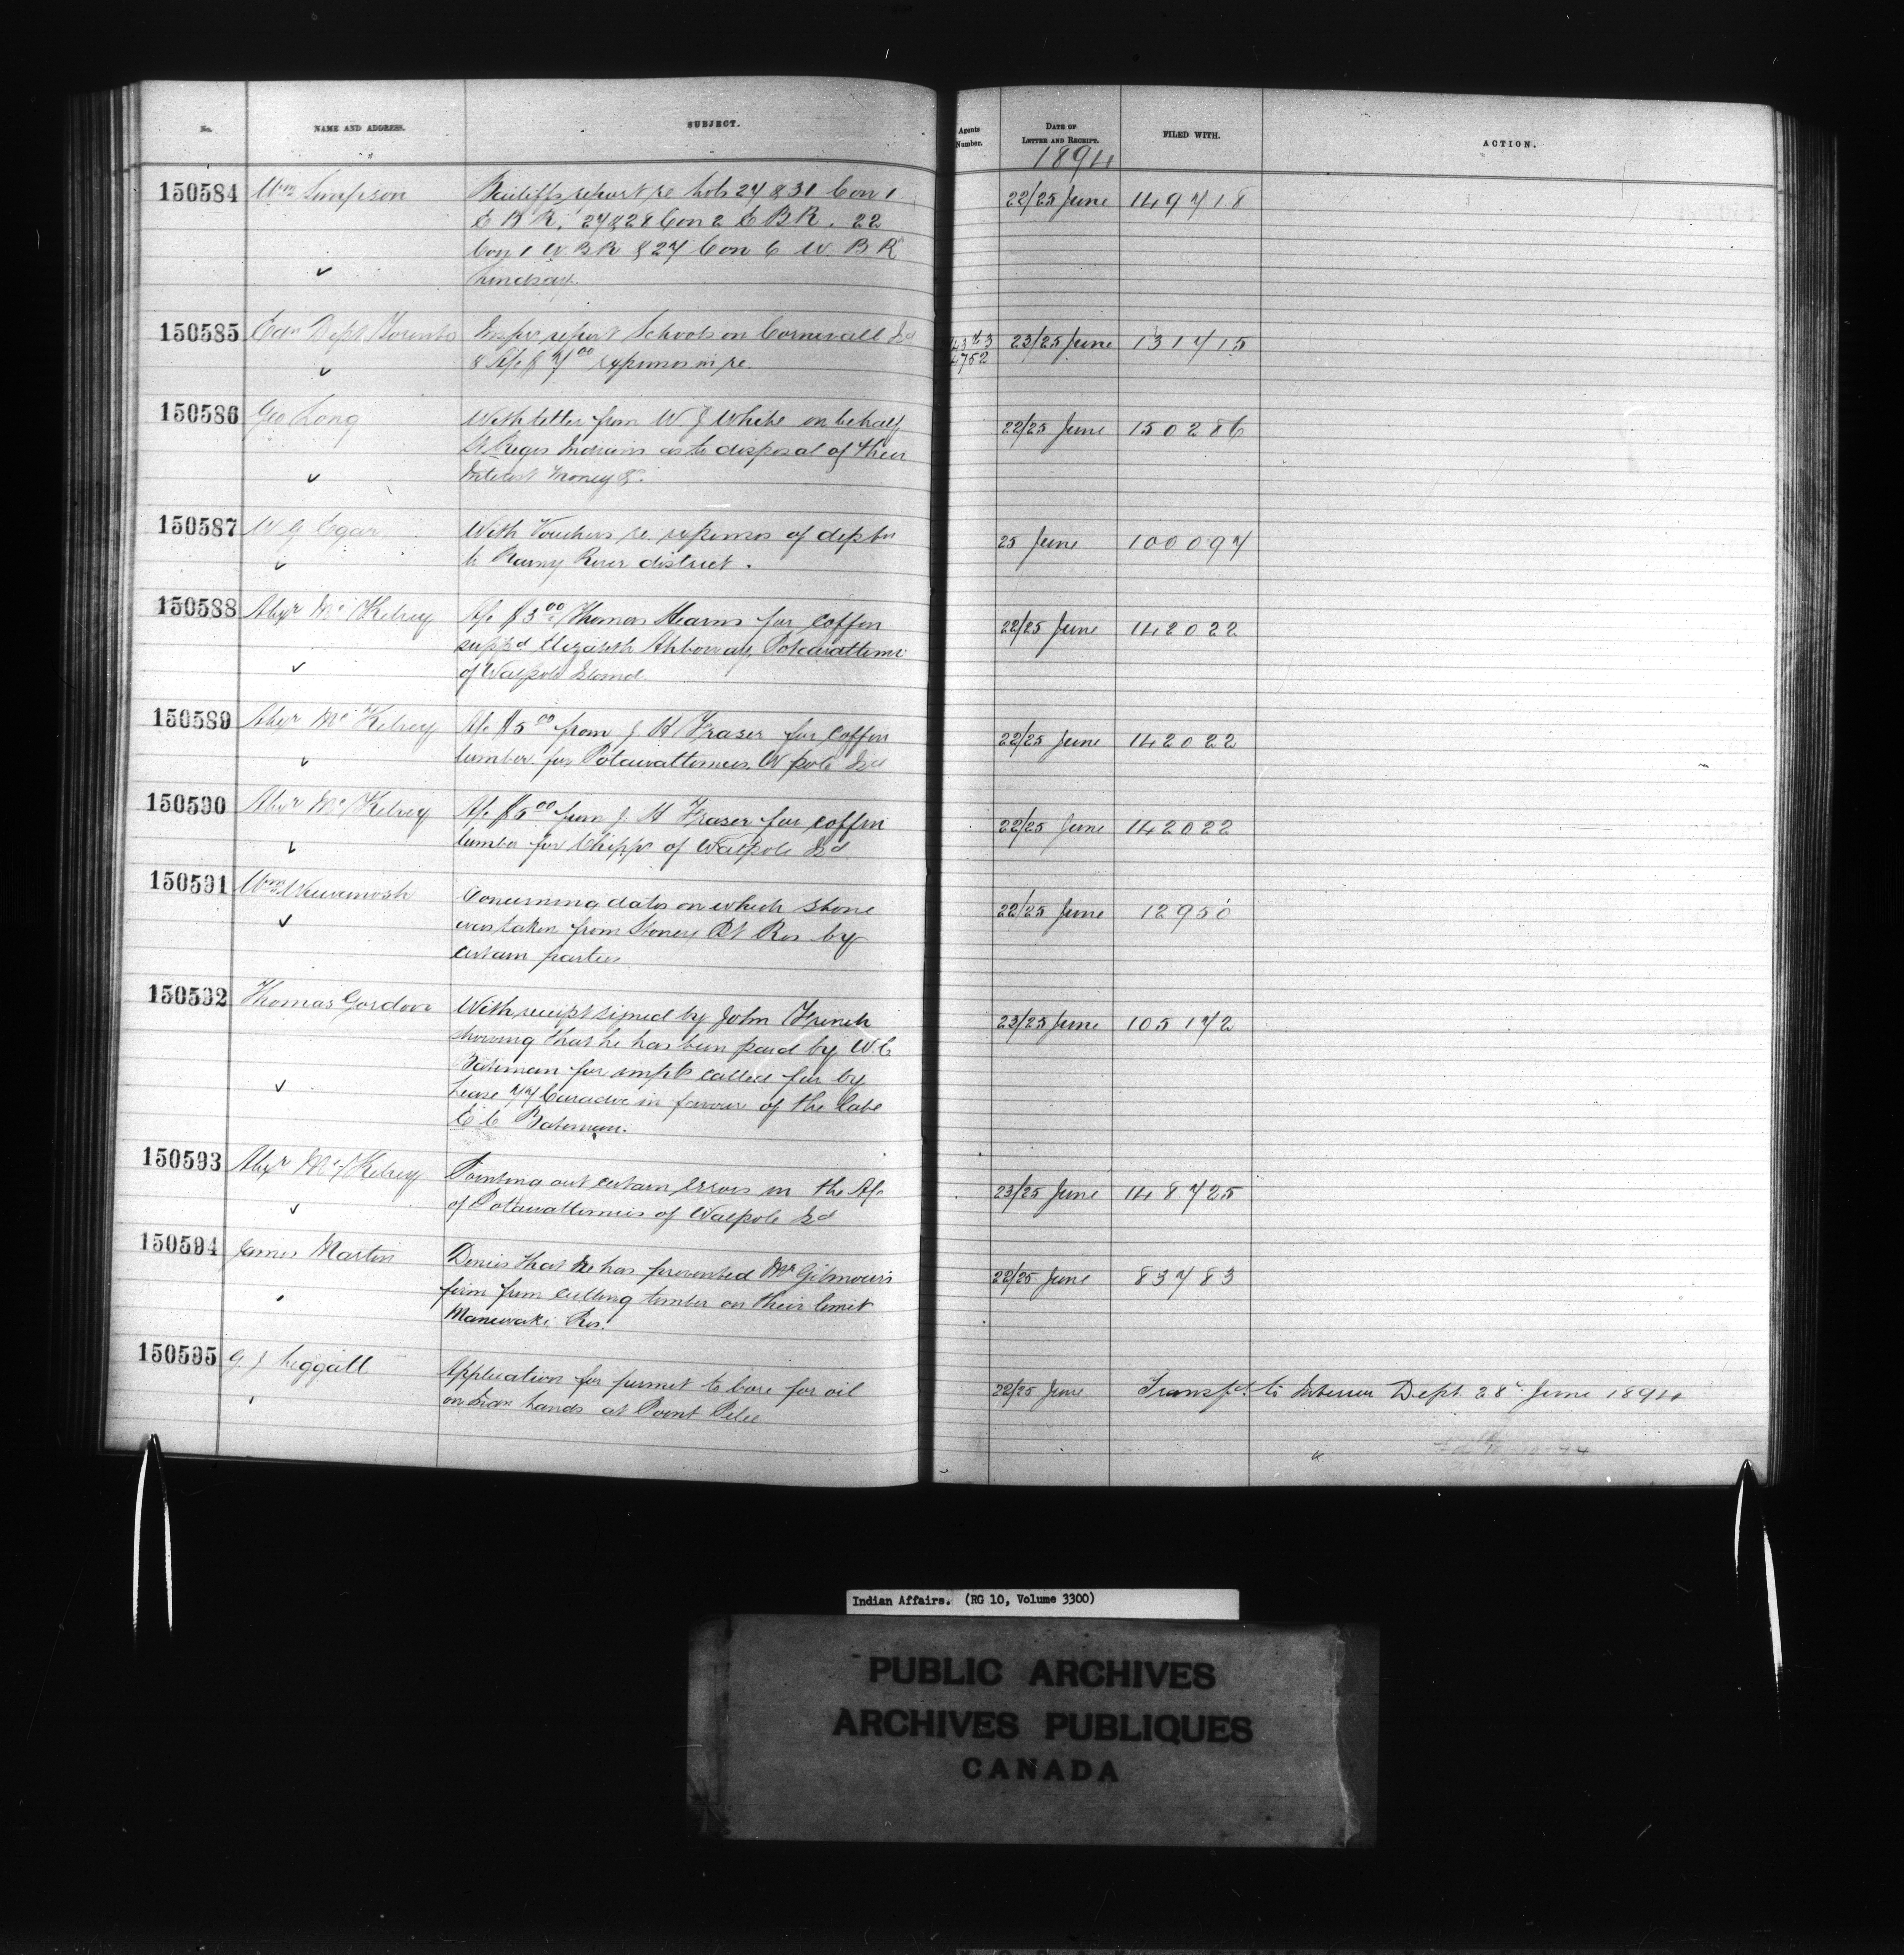 No. NAME AND ADDRESS. SUBJECT. Agents Number. DATE OF LETTER AND RECEIPT. FILED WITH. ACTION.
1894
150584 Wm Simpson Bailiffs report re Lots 27 & 31 Con 1 22/25 June 149718
E B R, 27 & 28 Con 2 E B R. 22
Con 1 W B R & 27 Con 6 W. B R
Lindsay.
150585 Edn Dept Toronto Inspr report Schools on Cornwall Isd 23/25 June 131715
& A/c $ 7/00 expenses in re. 4752
150586 Geo Long With letter from W. J White on behalf 22/25 June 150286
St Regis Indians as to disposal of their
Interest Money &c.
150587 W G Egar With Vouchers re. expenses of deptn 25 June 100097
to Rainy River district.
150588 Alexr McKelvey A/c $3 00 Thomas Hearns for coffin 22/25 June 142022
supp'd Elizabeth Pottawattomi
of Walpole Island.
150589 Alexr McKelvey A/c $5 00 from J H Fraser for coffin 22/25 June 142022
lumber for Potawattomies. W pole Isd
150590 Alexr McKelvey A/c $5 00 from J H Fraser for coffin 22/25 June 142022
lumber for Chipps of Walpole Isd
150591 Wm Wawanosh Concerning dates on which stone 22/25 June 12950
was taken from Stoney Pt Res by
certain parties
150592 Thomas Gordon With receipt signed by John French 23/25 June 105172
showing that he has been paid by W. C
Bateman for impts called for by
Lease 77 Caradoc in favour of the late
E C Bateman.
150593 Alexr McKelvey Pointing out certain errors in the A/c 23/25 June 148725
of Potawattomies of Walpole Isd
150594 James Martin Denies that he has prevented Mr Gilmour's 22/25 June 83783
firm from cutting timber on their limit
Maniwaki Res.
150595 G J Leggatt Application for permit to bore for oil 22/25 June Transfd to Interior Dept. 28 June 1894
on Indn lands at Point Pelee
Indian Affairs. (RG 10, Volume 3300)
PUBLIC ARCHIVES
ARCHIVES PUBLIQUES
CANADA